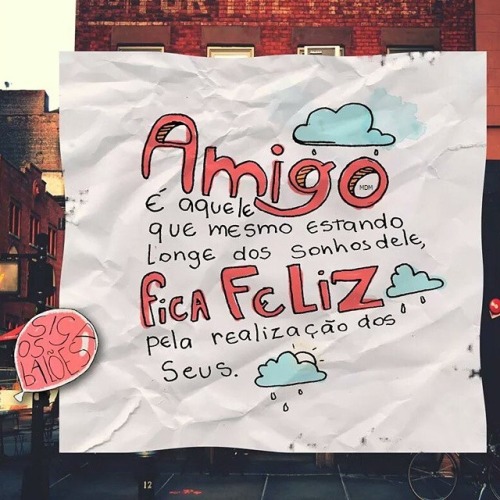 Amigo
MDM
É aquele
que mesmo estando
longe dos sonhos dele,
fica FELIZ
pela realização dos
seus.
SIGA
OS
BALÕES
12